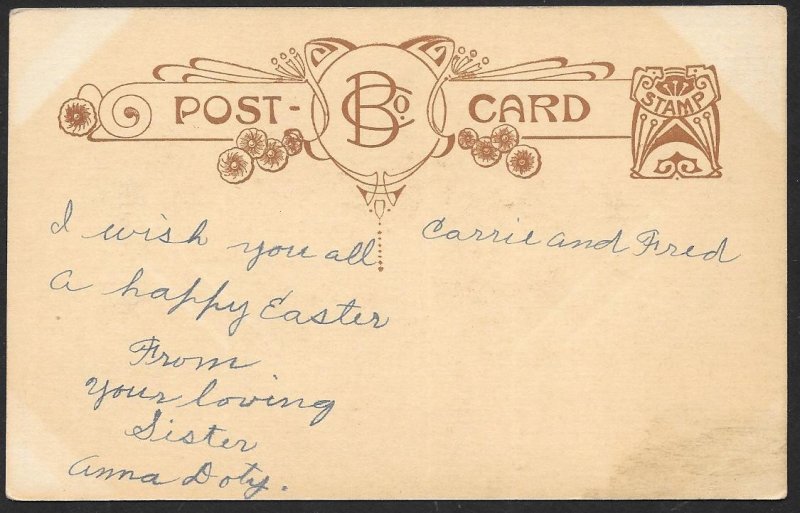 POST- B Co. CARD
STAMP
I wish you all
a happy Easter
From
your loving
Sister
Anna Doty.
Carrie and Fred